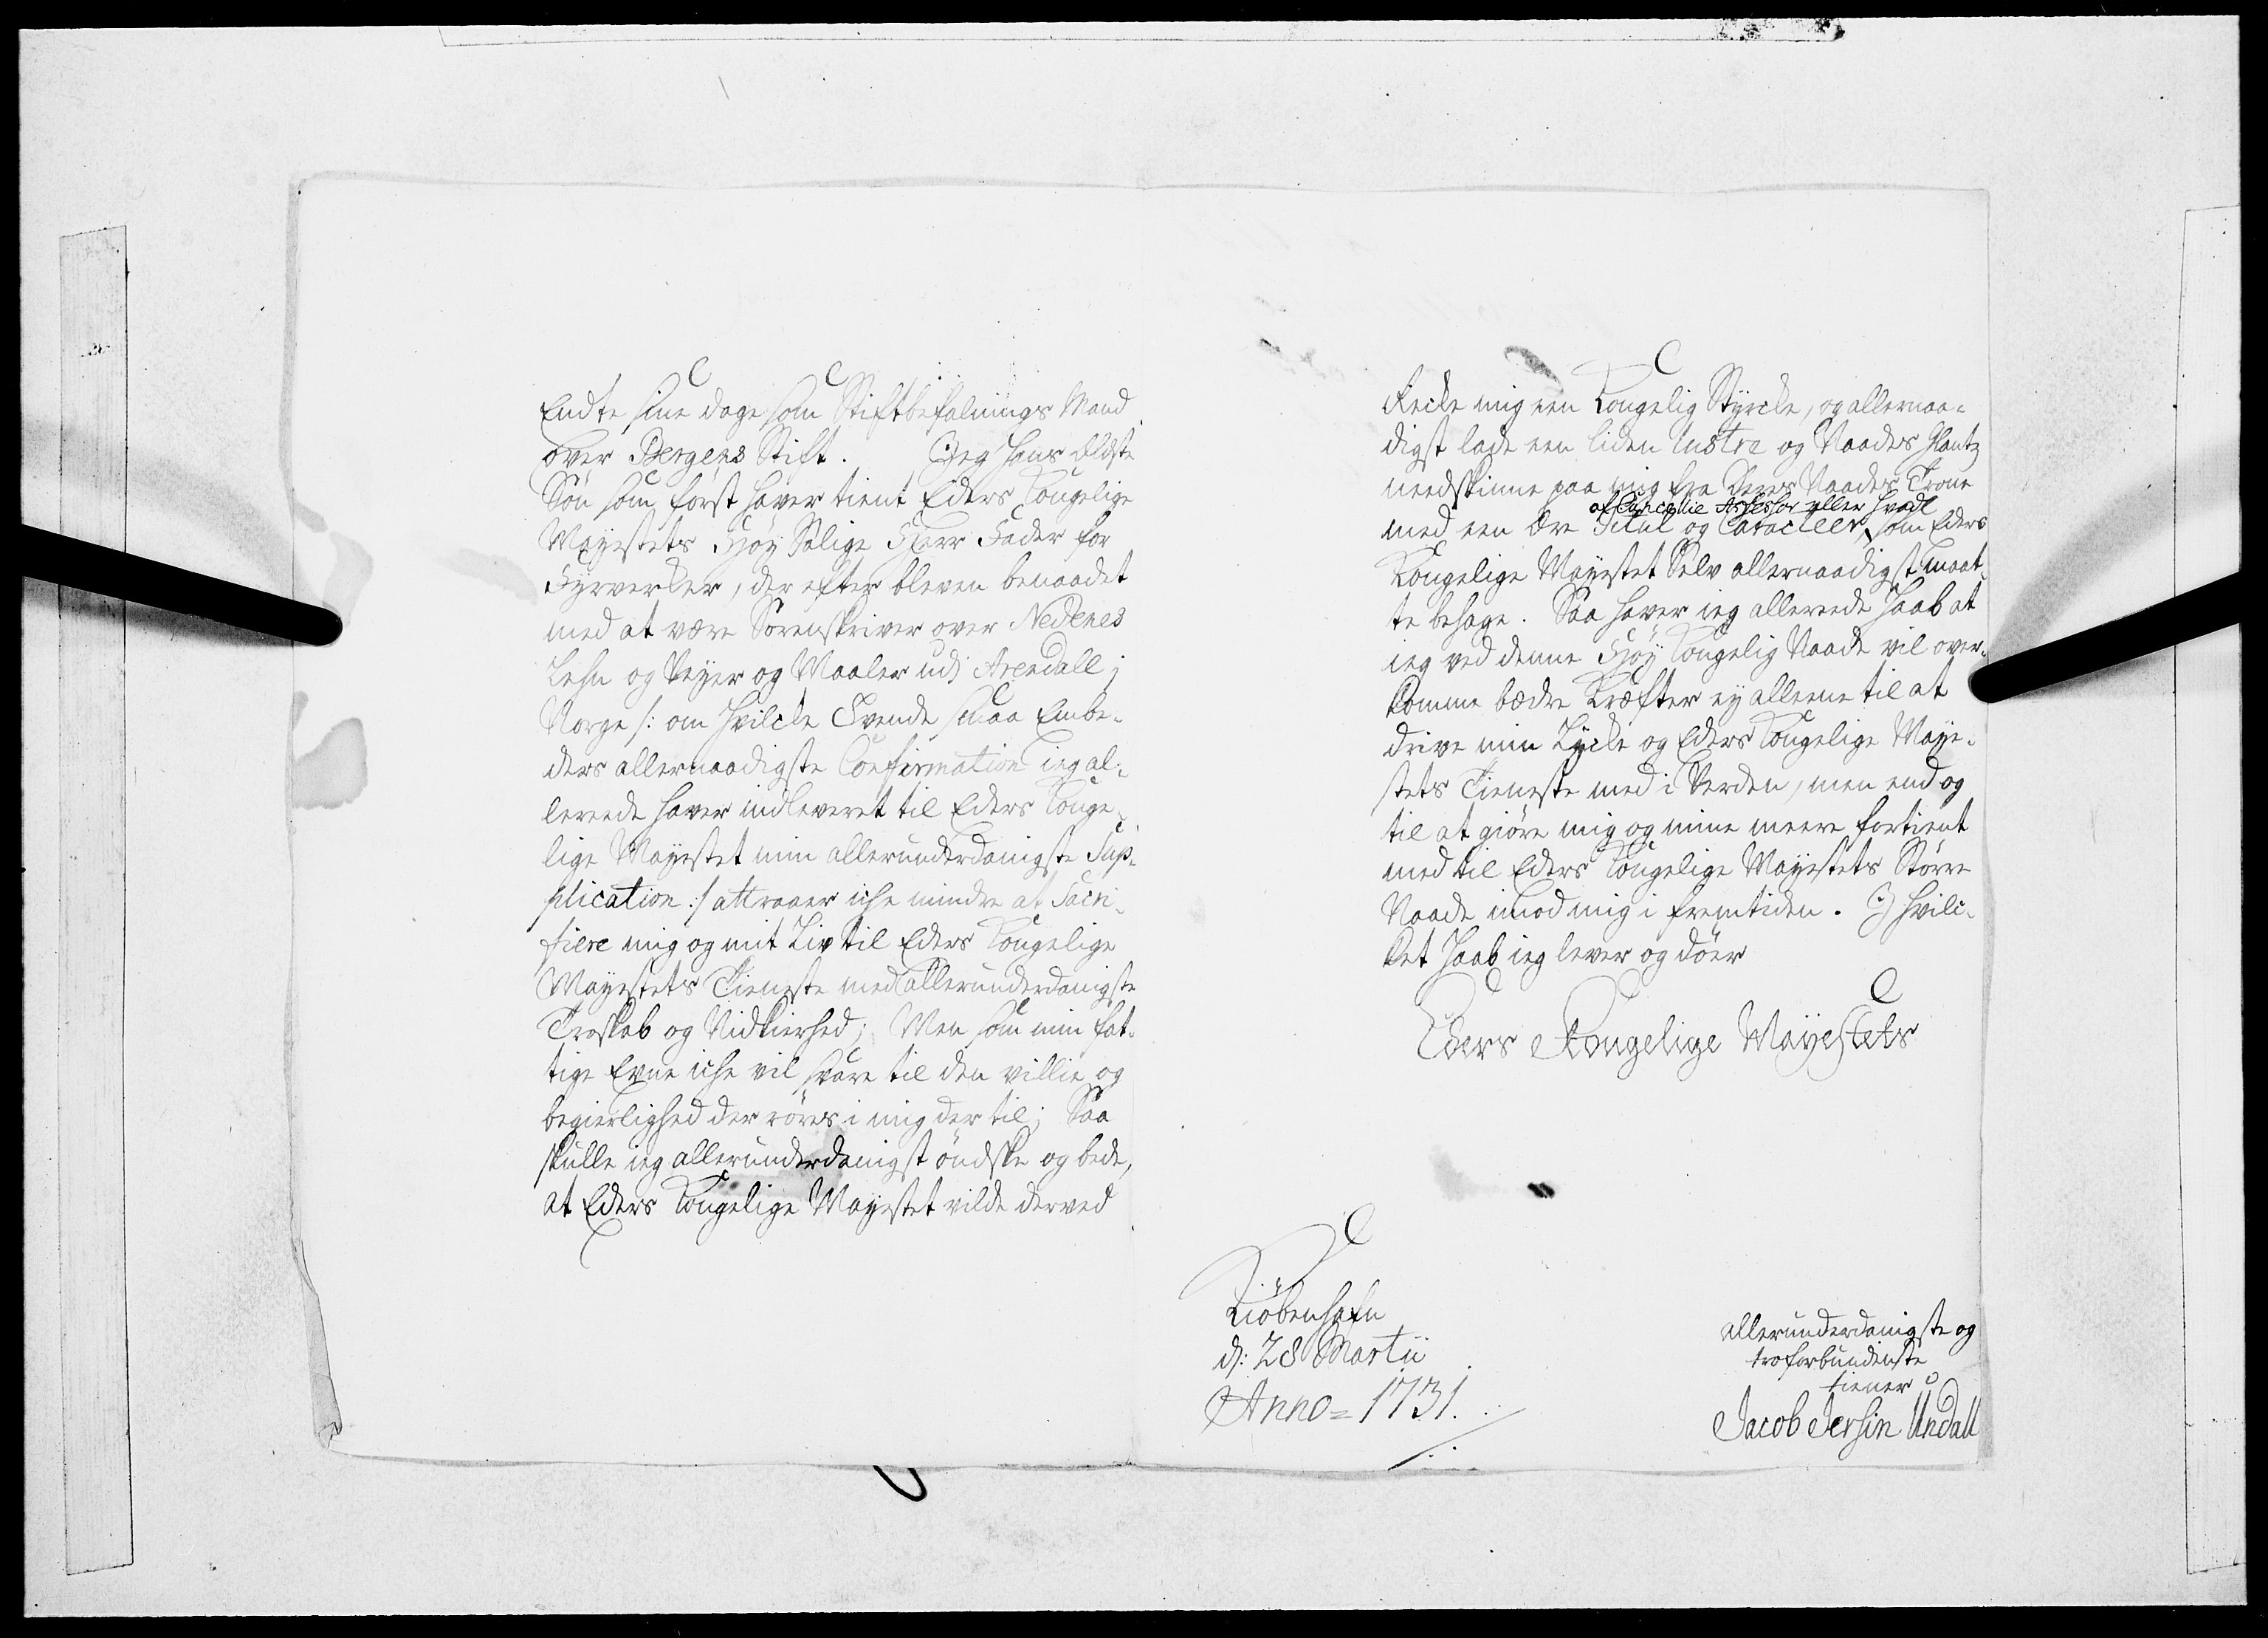 Endte sine dage som Stiftbefalnings Mand
over Bergens Stift. Jeg hans eldste
Søn som först haver tient Eders Kongelige
Mayestets Höy Salige Herr Fader for
Fyrverker, der efter bleven benaadet
med at være Sorenskriver over Nedenes
Lehn og Veyer og Maaler udj Arendall j
Norge /: om hvilcke Tvende smaa Embe-
ders allernaadigste Confirmation ieg al-
lereede haver indleveret til Eders Konge-
lige Mayestet min allerunderdanigste Sup-
plication :/ attraaer iche mindre at Sacri-
fiere mig og mit Liv til Eders Kongelige
Mayestets Tieneste med allerunderdanigste
Troskab og Nidkierhed; Men som min fat-
tige Evne iche vil svare til den villie og
begierlighed der röres i mig der til; Saa
skulle ieg allerunderdanigst öndske og bede,
at Eders Kongelige Mayestet vilde derved
Recke mig een Kongelig Styrcke, og allernaa-
digst lade een liden lustre og Naades Glantz
needskinne paa mig fra Deres Naades Trone
af Cancellie Assessor eller hvad
med een Ære Titul og Caracteer, som Eders
Kongelige Mayestet Selv allernaadigst maat-
te behage. Saa haver ieg allereede Haab at
ieg ved denne Höy Kongelig Naade vil over-
komme bædre Kræfter ey alleene til at
drive min Lycke og Eders Kongelige Maye-
stets Tieneste med i Verden, men end og
til at giöre mig og mine meere fortient
med til Eders Kongelige Mayestets Större
Naade imod mig i fremtiden. J hvilc-
ket Haab ieg lever og döer
Eders Kongelige Mayestets
Kiöbenhafn
d: 28 Martii
Anno = 1731.
allerunderdanigste og
troforbundenste
tiener
Jacob Jersin Undall